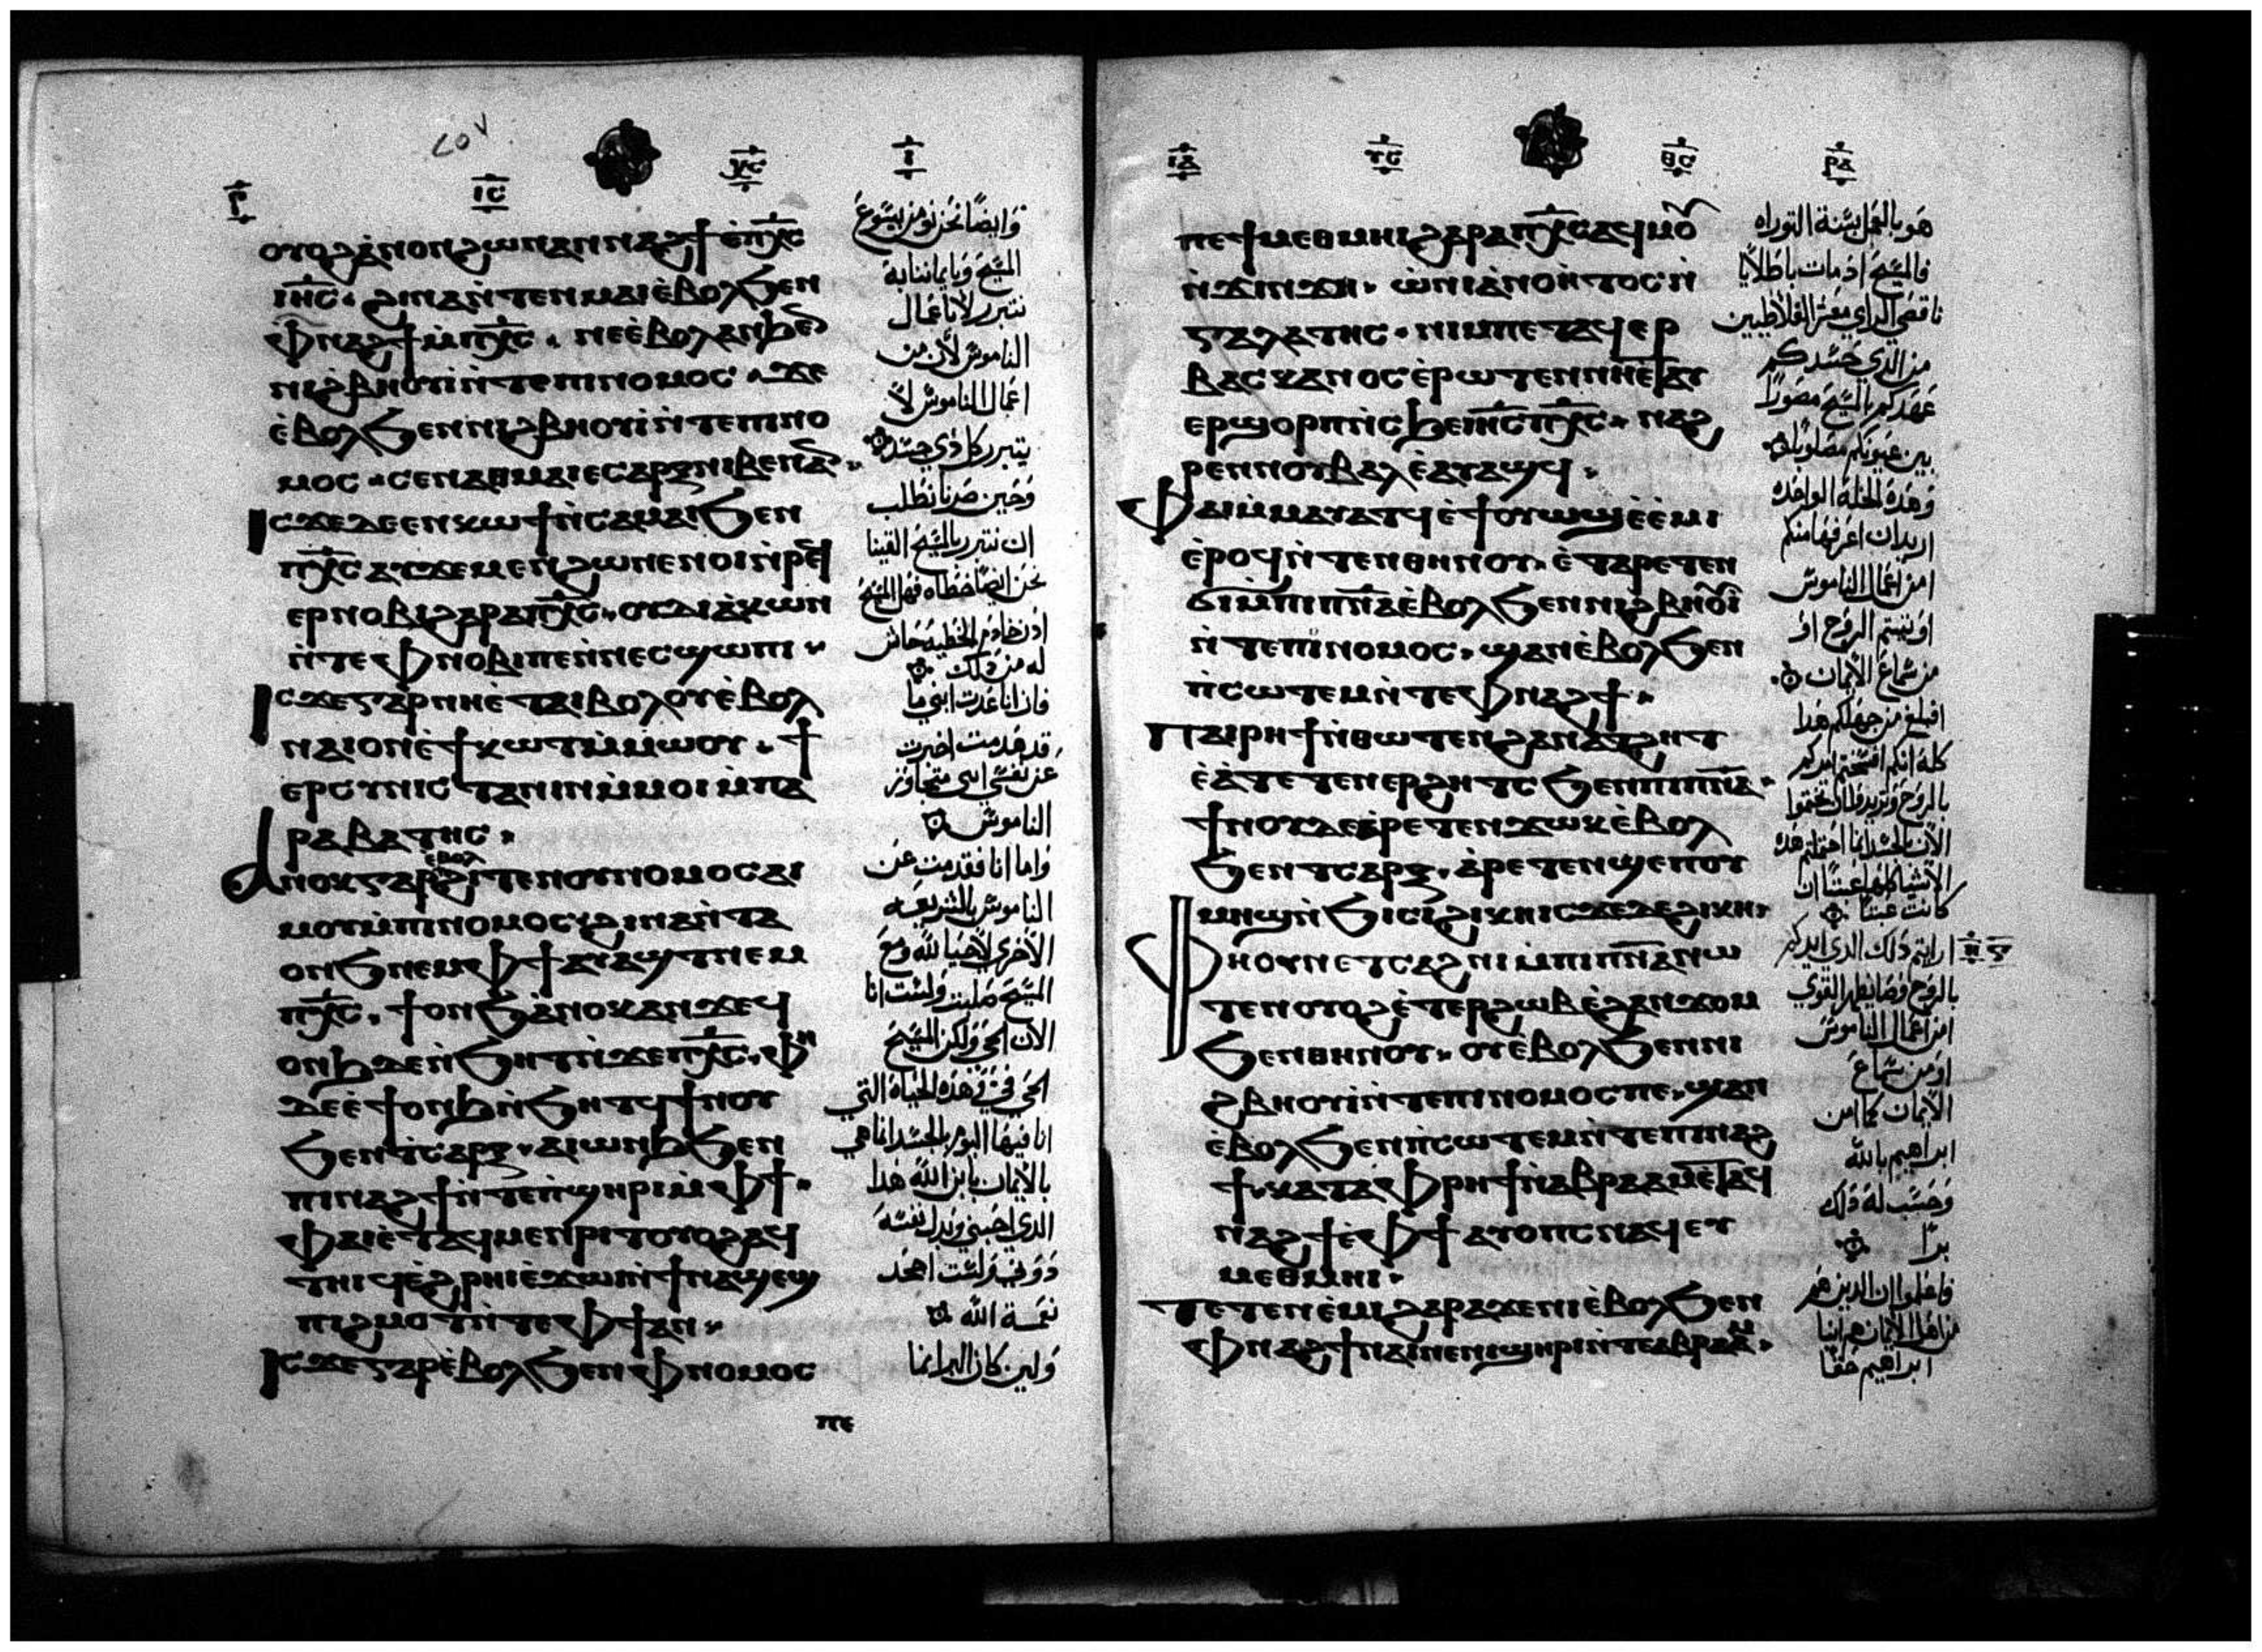 ⲒⲤ ⲬⲤ
ⲟⲩⲟϩ ⲁ̀ⲛⲟⲛ ϩⲱⲛ ⲁⲛⲛⲁϩϯ ⲉ̀ⲡⲭ̅ⲥ
ⲓⲏ̅ⲥ · ϩⲓⲛⲁ ⲛ̀ⲧⲉⲛⲙⲁⲓ ⲉ̀ⲃⲟⲗ ϧⲉⲛ
ⲫⲛⲁϩϯ ⲙ̀ⲡⲭ̅ⲥ · ⲛⲉ ⲉ̀ⲃⲟⲗ ⲁⲛ ϧⲉⲛ
ⲛⲓϩ̀ⲃⲏⲟⲩⲓ̀ ⲛ̀ⲧⲉ ⲡⲓⲛⲟⲙⲟⲥ · ϫⲉ
ⲉ̀ⲃⲟⲗ ϧⲉⲛ ⲛⲓϩⲃⲏⲟⲩⲓ̀ ⲛ̀ⲧⲉ ⲡⲓⲛⲟ
ⲙⲟⲥ · ⲥⲉⲛⲁⲑⲙⲁⲓⲉ ⲥⲁⲣⲝ ⲛⲓⲃⲉⲛ ⲁⲛ
ⲓⲥϫⲉ ⲇⲉ ⲉⲛⲕⲱϯ ⲛ̀ⲥⲁ ⲙⲁⲓ ϧⲉⲛ
ⲡⲭ̅ⲥ ⲁⲩϫⲉⲙⲉⲛ ϩⲱⲛ ⲉⲛⲟⲓ ⲛ̀ⲣⲉϥ
ⲉⲣⲛⲟⲃⲓ ϩⲁⲣⲁ ⲡⲭ̅ⲥ · ⲟⲩⲇⲓⲁⲕⲱⲛ
ⲛ̀ⲧⲉ ⲫⲛⲟⲃⲓ ⲡⲉ ⲛ̀ⲛⲉⲥϣⲱⲡⲓ
ⲓⲥϫⲉ ⲅⲁⲣ ⲛⲏ ⲉ̀ⲧⲁⲓⲃⲟⲗⲟⲩ ⲉ̀ⲃⲟⲗ
ⲛⲁⲓ ⲟⲛ ⲉ̀ϯⲕⲱⲧ ⲙ̀ⲙⲱⲟⲩ · ϯ
ⲉⲣⲥⲩⲛⲓⲥⲧⲁⲛⲓⲛ ⲙ̀ⲙⲟⲓ ⲙ̀ⲡⲁ
ⲣⲁⲃⲁⲧⲏⲥ
ⲁⲛⲟⲕ ⲅⲁⲣ ⲉⲃⲟⲗ ϩⲓⲧⲉⲛ ⲟⲩⲛⲟⲙⲟⲥ ⲁⲓ
ⲙⲟⲩ ⲙ̀ⲡⲓⲛⲟⲙⲟⲥ ϩⲓⲛⲁ ⲛ̀ⲧⲁ
ⲱⲛϧ ⲛⲉⲙ ⲫϯ ⲁⲓⲁϣⲧ ⲛⲉⲙ
ⲡⲭ̅ⲥ · ϯⲟⲛϧ ⲁ̀ⲛⲟⲕ ⲁⲛ ϫⲉ ϥ
ⲟⲛϧ ⲇⲉ ⲛ̀ϧⲏⲧ ⲛ̀ϫⲉ ⲡⲭ̅ⲥ · ⲫⲏ
ⲇⲉ ⲉ̀ϯⲟⲛϧ ⲛ̀ϧⲏⲧϥ ϯⲛⲟⲩ
ϧⲉⲛ ⲧⲥⲁⲣⲝ · ⲁⲓⲱⲛϧ ϧⲉⲛ
ⲡⲓⲛⲁϩϯ ⲛ̀ⲧⲉ ⲡ̀ϣⲏⲣⲓ ⲙ̀ⲫϯ
ⲫⲁⲓ ⲉ̀ⲧⲁϥⲙⲉⲛⲣⲓⲧ ⲟⲩⲟϩ ⲁϥ
ⲧⲏⲓϥ ⲉ̀ϩⲣⲏⲓ ⲉ̀ϫⲱⲓ ⲛ̀ϯⲛⲁϣⲉϣ
ⲡⲓϩⲙⲟⲧ ⲛ̀ⲧⲉ ⲫϯ ⲁⲛ
ⲓⲥϫⲉ ⲅⲁⲣ ⲉ̀ⲃⲟⲗ ϧⲉⲛ ⲫⲛⲟⲙⲟⲥ
ⲡⲉ
وايضا نحن نؤمن بيسوع
المسيح وبايماننا به
نتبرر لا باعمال
الناموس لان من
اعمال الناموس لا
يتبرر كل ذي جسد
وحين صرنا نطلب
ان نتبرر بالمسيح الفينا
نحن ايضا خطاه فهل المسيح
اذن خادم الخطيه حاش
له من ذلك
فان انا عدت ابني ما
قد هدمت اخبرت
عن نفسي اني متجاوز
الناموس
واما انا فقد مت عن
الناموس بالشريعه
الاخرى لاحيا لله ومع
المسيح صلبت ولست انا
الان احي ولكن المسيح
احي في في هذه الحياه التي
انا فيها اليوم بالجسد انا حي
بالايمان بابن الله هذا
الذي احبني وبدل نفسه
دوني ولست اجحد
نعمة الله
ولين كان البر انما
ⲡⲉ ϯⲙⲉⲑⲙⲏⲓ ϩⲁⲣⲁ ⲡⲭ̅ⲥ ⲁϥⲙⲟⲩ
ⲛ̀ϫⲓⲛϫⲏ · ⲱ̀ ⲛⲓⲁ̀ⲛⲟⲏ̀ⲧⲟⲥ ⲛ̀
ⲅⲁⲗⲁⲧⲏⲥ · ⲛⲓⲙ ⲡⲉⲧⲁϥⲉⲣ
ⲃⲁⲥⲕⲁⲛⲟⲥ ⲉ̀ⲣⲱⲧⲉⲛ ⲛⲏ ⲉ̀ⲧⲁⲩ
ⲉⲣϣⲟⲣⲡ ⲛ̀ⲥϧⲉ ⲓⲏ̅ⲥ ⲡⲭ̅ⲥ · ⲛⲁϩ
ⲣⲉⲛ ⲛⲟⲩⲃⲁⲗ ⲉ̀ⲁⲩⲁϣϥ
ⲫⲁⲓ ⲙ̀ⲙⲁⲩⲁⲧϥ ⲉ̀ϯⲟⲩⲱϣ ⲉ̀ⲉ̀ⲙⲓ
ⲉ̀ⲣⲟϥ ⲛ̀ⲧⲉⲛ ⲑⲏⲛⲟⲩ · ⲉ̀ⲧⲁⲣⲉⲧⲉⲛ
ϭⲓ ⲙ̀ⲡⲓⲡⲛ̅ⲁ ⲉ̀ⲃⲟⲗ ϧⲉⲛ ⲛⲓϩⲃⲏⲟⲩⲓ̀
ⲛ̀ⲧⲉ ⲡⲓⲛⲟⲙⲟⲥ · ϣⲁⲛ ⲉ̀ⲃⲟⲗ ϧⲉⲛ
ⲡ̀ⲥⲱⲧⲉⲙ ⲛ̀ⲧⲉ ⲫⲛⲁϩϯ
ⲡⲁⲓⲣⲏϯ ⲛ̀ⲑⲱⲧⲉⲛ ϩⲁⲛⲁⲧϩⲏⲧ
ⲉ̀ⲁ̀ⲧⲉⲧⲉⲛⲉⲣϩⲏⲧⲥ ϧⲉⲛ ⲡⲓⲡⲛ̅ⲁ
ϯⲛⲟⲩ ⲇⲉ ⲁ̀ⲣⲉⲧⲉⲛϫⲱⲕ ⲉ̀ⲃⲟⲗ
ϧⲉⲛ ⲧⲥⲁⲣⲝ · ⲁ̀ⲣⲉⲧⲉⲛϣⲉⲡ ⲟⲩ
ⲙⲏϣ ⲛ̀ϧⲓⲥⲓ ϩ̀ⲓⲕⲏ ⲓⲥϫⲉ ⲇⲉ ϩⲓⲕⲏ
ⲫⲏ ⲟⲩⲛ ⲉⲧⲥⲁϩⲛⲓ ⲙ̀ⲡⲓⲡⲛ̅ⲁ ⲛⲱ
ⲧⲉⲛ ⲟⲩⲟϩ ⲉ̀ⲧⲉⲣϩⲱⲃ ⲉ̀ϩⲁⲛϫⲟⲙ
ϧⲉⲛ ⲑⲏⲛⲟⲩ · ⲟⲩ ⲉ̀ⲃⲟⲗ ϧⲉⲛ ⲛⲓ
ϩⲃⲏⲟⲩⲓ̀ ⲛ̀ⲧⲉ ⲡⲓⲛⲟⲙⲟⲥ ⲡⲉ · ϣⲁⲛ
ⲉ̀ⲃⲟⲗ ϧⲉⲛ ⲡ̀ⲥⲱⲧⲉⲙ ⲛ̀ⲧⲉ ⲡⲓⲛⲁϩ
ϯ · ⲕⲁⲧⲁ ⲫⲣⲏϯ ⲛ̀ⲁⲃⲣⲁⲁⲙ ⲉ̀ⲧⲁϥ
ⲛⲁϩϯ ⲉ̀ⲫϯ ⲁⲩⲟⲡⲥ ⲛⲁϥ ⲉⲩ
ⲙⲉⲑⲙⲏⲓ
ⲧⲉⲧⲉⲛⲉ̀ⲙⲓ ϩⲁⲣⲁ ϫⲉ ⲛⲓⲉ̀ⲃⲟⲗ ϧⲉⲛ
ⲫⲛⲁϩϯ ⲛⲁⲓ ⲛⲉ ⲛⲓϣⲏⲣⲓ ⲛ̀ⲧⲉ ⲁⲃⲣⲁⲁⲙ
هو بالعمل بسنة التوراه
فالمسيح اذ مات باطلا يا
ناقصي الراي معشر الغلاطيين
من الذي حسدكم
عهدكم بالمسيح مصورا
بين عيونكم مصلوبا
وهذه الخله الواحده
اريد ان اعرفها منكم
امن اعمال الناموس
اوتيتم الروح او
من سماع الايمان
افبلغ من جهلكم هذا
كله انكم افتتحتم امركم
الان بالجسد انما احتملتم هذه
الاشيا كلها عبثا ان
كانت عبثا
ارايتم ذلك الذي ايدكم
امن اعمال الناموس
او من سماع
الايمان كما امن
ابراهيم بالله
وحسب له ذلك
برا
فاعلموا ان الذين هم
من اهل الايمان هم ابنا
ابراهيم حقا